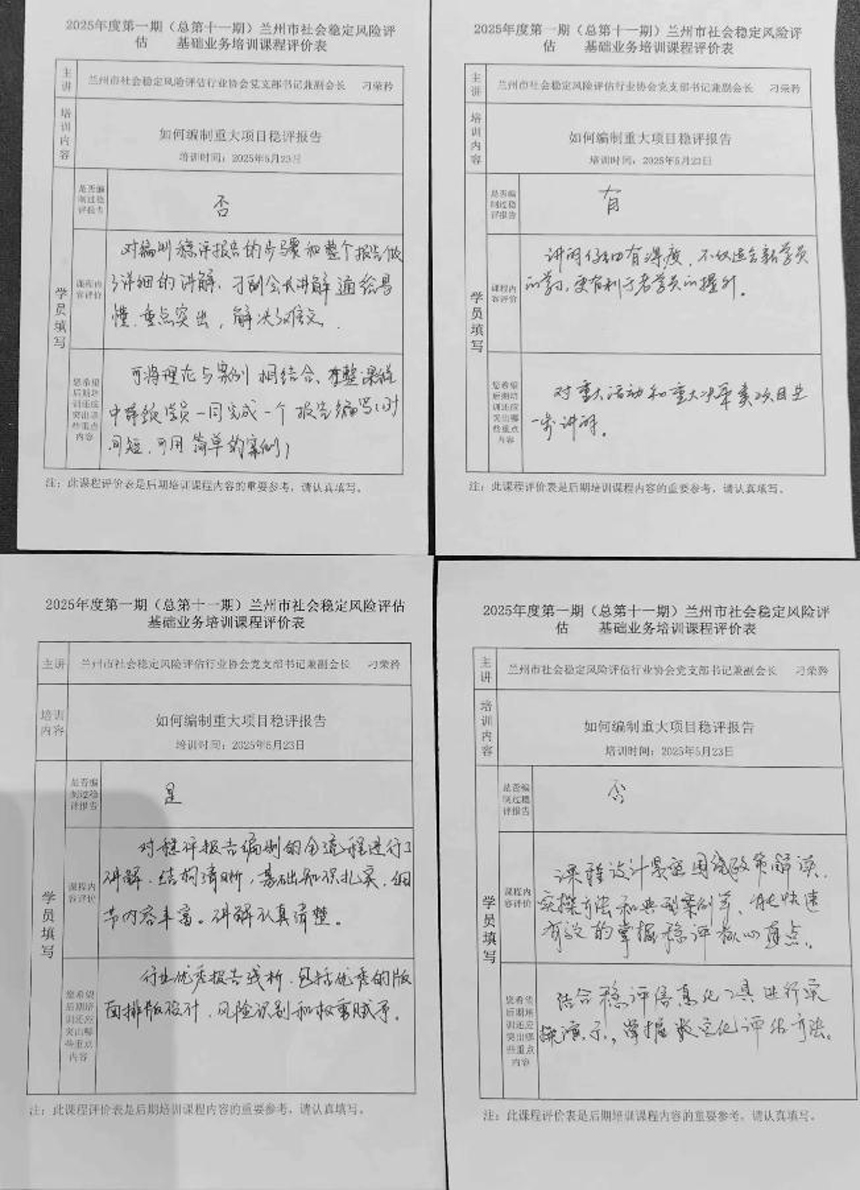 2025年度第一期（总第十一期）兰州市社会稳定风险评
估 基础业务培训课程评价表
主讲 兰州市社会稳定风险评估行业协会党支部书记兼副会长 刁荣矜
培训内容
如何编制重大项目稳评报告
培训时间：2025年5月23日
学员填写
是否编制过稳评报告
否
课程内容评价
对编制稳评报告的步骤和整个报告做
了详细的讲解，刁副会长讲解通俗易
懂，重点突出，解决了难文。
您希望后期培训还应突出哪些重点内容
可将理论与案例相结合，在整课程
中带领学员一同完成一个报告编写（时
间短，可用简单的案例）
注：此课程评价表是后期培训课程内容的重要参考，请认真填写。
2025年度第一期（总第十一期）兰州市社会稳定风险评
估 基础业务培训课程评价表
主讲 兰州市社会稳定风险评估行业协会党支部书记兼副会长 刁荣矜
培训内容
如何编制重大项目稳评报告
培训时间：2025年5月23日
学员填写
是否编制过稳评报告
有
课程内容评价
讲的仔细有深度，不仅适合新学员
的学习，更有利于老学员的提升。
您希望后期培训还应突出哪些重点内容
对重大活动和重大决策类项目进
一步讲解。
注：此课程评价表是后期培训课程内容的重要参考，请认真填写。
2025年度第一期（总第十一期）兰州市社会稳定风险评估
基础业务培训课程评价表
主讲 兰州市社会稳定风险评估行业协会党支部书记兼副会长 刁荣矜
培训内容
如何编制重大项目稳评报告
培训时间：2025年5月23日
学员填写
是否编制过稳评报告
是
课程内容评价
对稳评报告编制的全流程进行了
讲解，结构清晰，基础知识扎实，细
节内容丰富。讲解认真清楚。
您希望后期培训还应突出哪些重点内容
行业优秀报告浅析，包括优秀的版
面排版设计，风险识别和权重赋予。
注：此课程评价表是后期培训课程内容的重要参考，请认真填写。
2025年度第一期（总第十一期）兰州市社会稳定风险评
估 基础业务培训课程评价表
主讲 兰州市社会稳定风险评估行业协会党支部书记兼副会长 刁荣矜
培训内容
如何编制重大项目稳评报告
培训时间：2025年5月23日
学员填写
是否编制过稳评报告
否
课程内容评价
课程设计紧密围绕政策解读，
实操方法和典型案例等，能快速
有效的掌握稳评核心重点。
您希望后期培训还应突出哪些重点内容
结合稳评信息化工具进行实
操演示，掌握数字化评估方法。
注：此课程评价表是后期培训课程内容的重要参考，请认真填写。